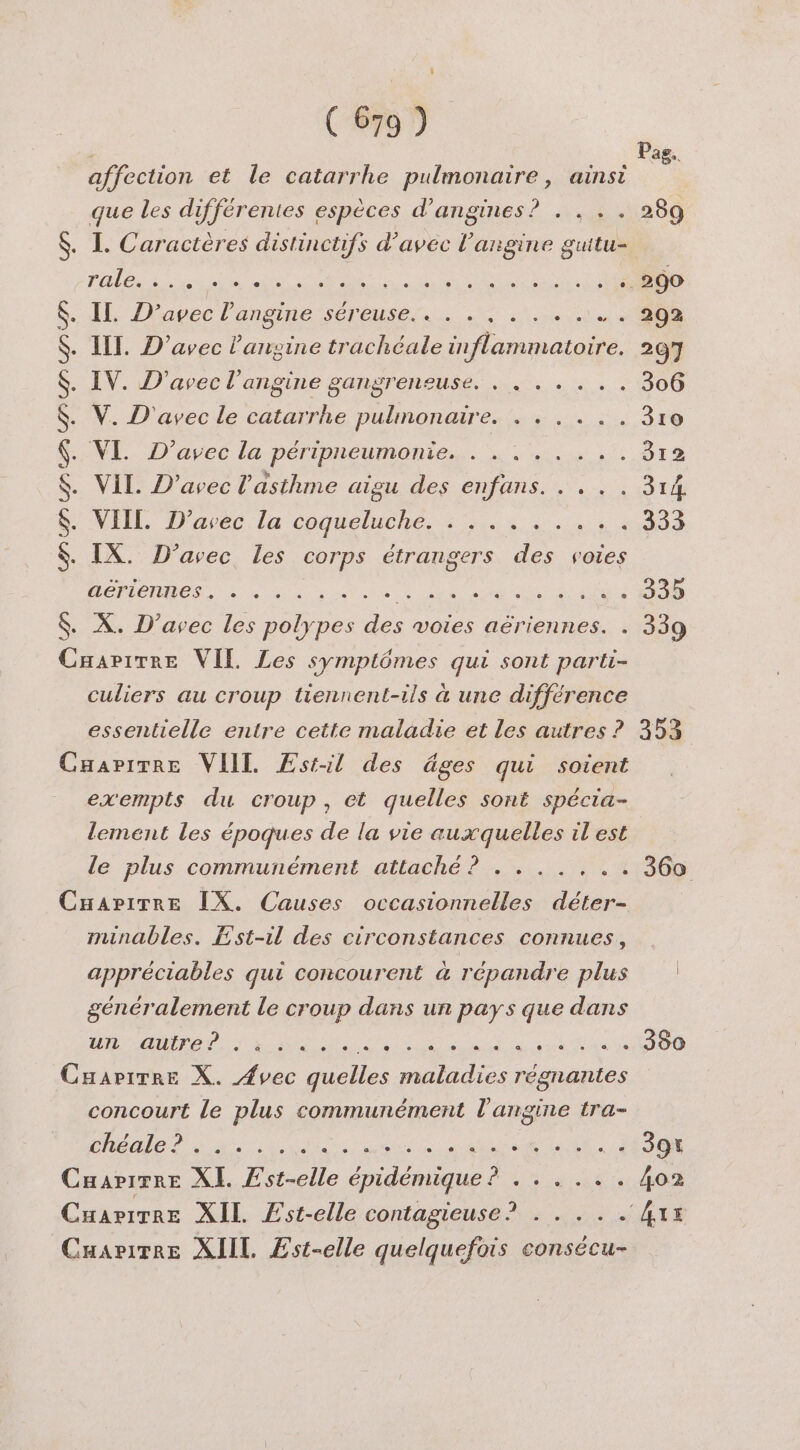 ( 679 )
Pag.
affection et le catarrhe pulmonaire, ainsi
que les différentes espèces d'angines? . . . . 289
§. I. Caractères distinctifs d'avec l'angine guttu-
rale. . . . . . . . . . . . . . . . . . . . 290
§. II. D'avec l'angine séreuse. . . . . . . . . . 292
§. III. D'avec l'angine trachéale inflammatoire. 297
§. IV. D'avec l'angine gangreneuse. . . . . . . . 306
§. V. D'avec le catarrhe pulmonaire. . . . . . . 310
§. VI. D'avec la péripneumonie. . . . . . . . . 312
§. VII. D'avec l'asthme aigu des enfans. . . . . 314
§. VIII. D'avec la coqueluche. . . . . . . . . . 333
§. IX. D'avec les corps étrangers des voies
aëriennes. . . . . . . . . . . . . . . . . . 335
§. X. D'avec les polypes des voies aëriennes. . 339
CHAPITRE VII. Les symptômes qui sont parti-
culiers au croup tiennent-ils à une différence
essentielle entre cette maladie et les autres? 353
CHAPITRE VIII. Est-il des âges qui soient
exempts du croup, et quelles sont spécia-
lement les époques de la vie auxquelles il est
le plus communément attaché? . . . . . . . 360
CHAPITRE IX. Causes occasionnelles déter-
minables. Est-il des circonstances connues,
appréciables qui concourent à répandre plus
généralement le croup dans un pays que dans
un autre? . . . . . . . . . . . . . . . . . 380
CHAPITRE X. Avec quelles maladies régnantes
concourt le plus communément l'angine tra-
chéale? . . . . . . . . . . . . . . . . . . 391
CHAPITRE XI. Est-elle épidémique? . . . . . . 402
CHAPITRE XII. Est-elle contagieuse? . . . . . 411
CHAPITRE XIII. Est-elle quelquefois consécu-